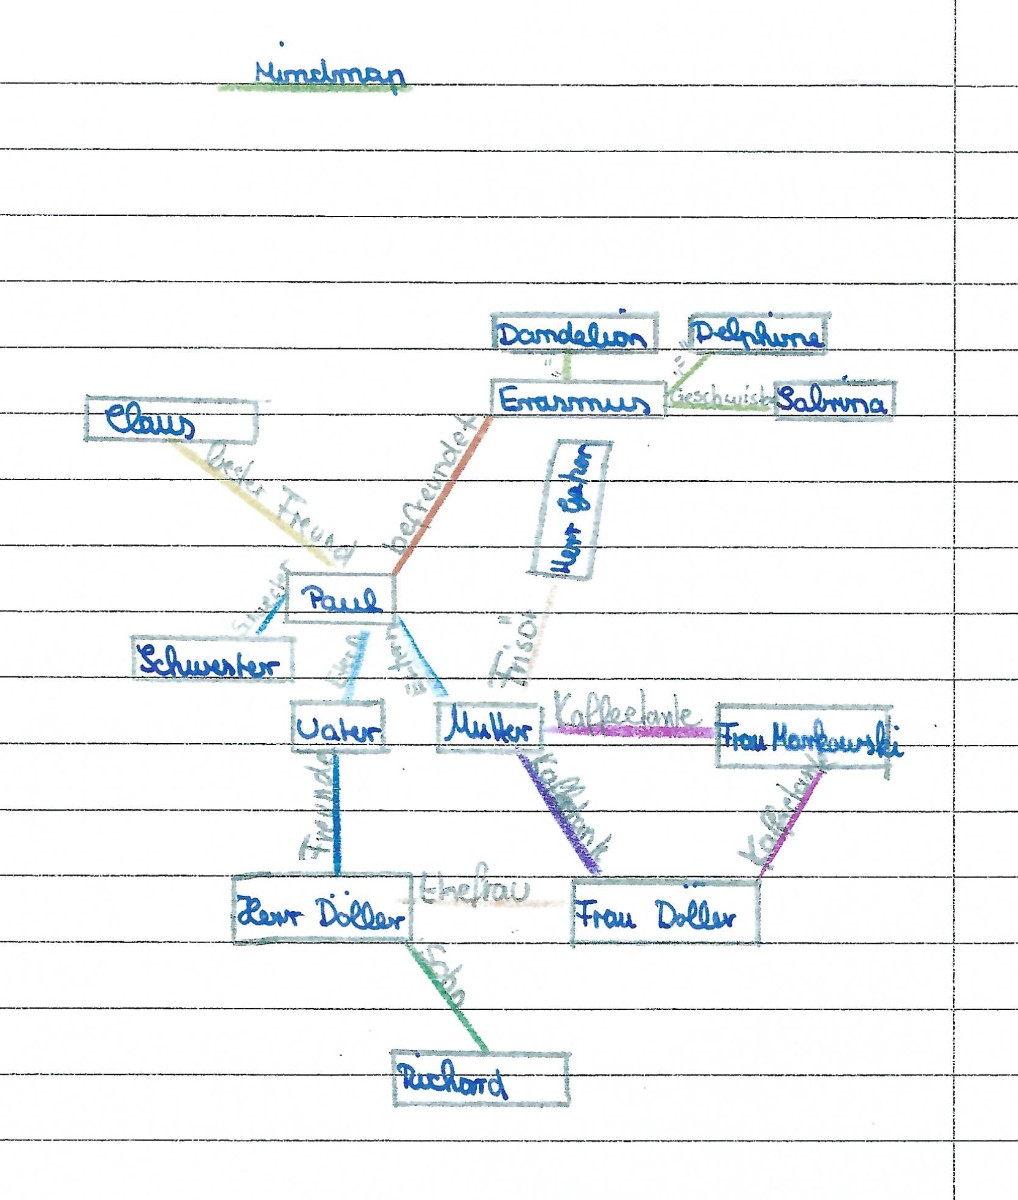 Mindmap
Dandelion
Delphine
"
"="
Erasmus
Geschwister
Sabrina
Claus
bester Freund
befreundet
Herr
Paul
Schwester
Frisör
Eltern
Eltern
Vater
Mutter
Kaffeetante
Frau Markowski
Freunde
Kaffeetante
Herr Döller
Ehefrau
Frau Döller
Sohn
Richard